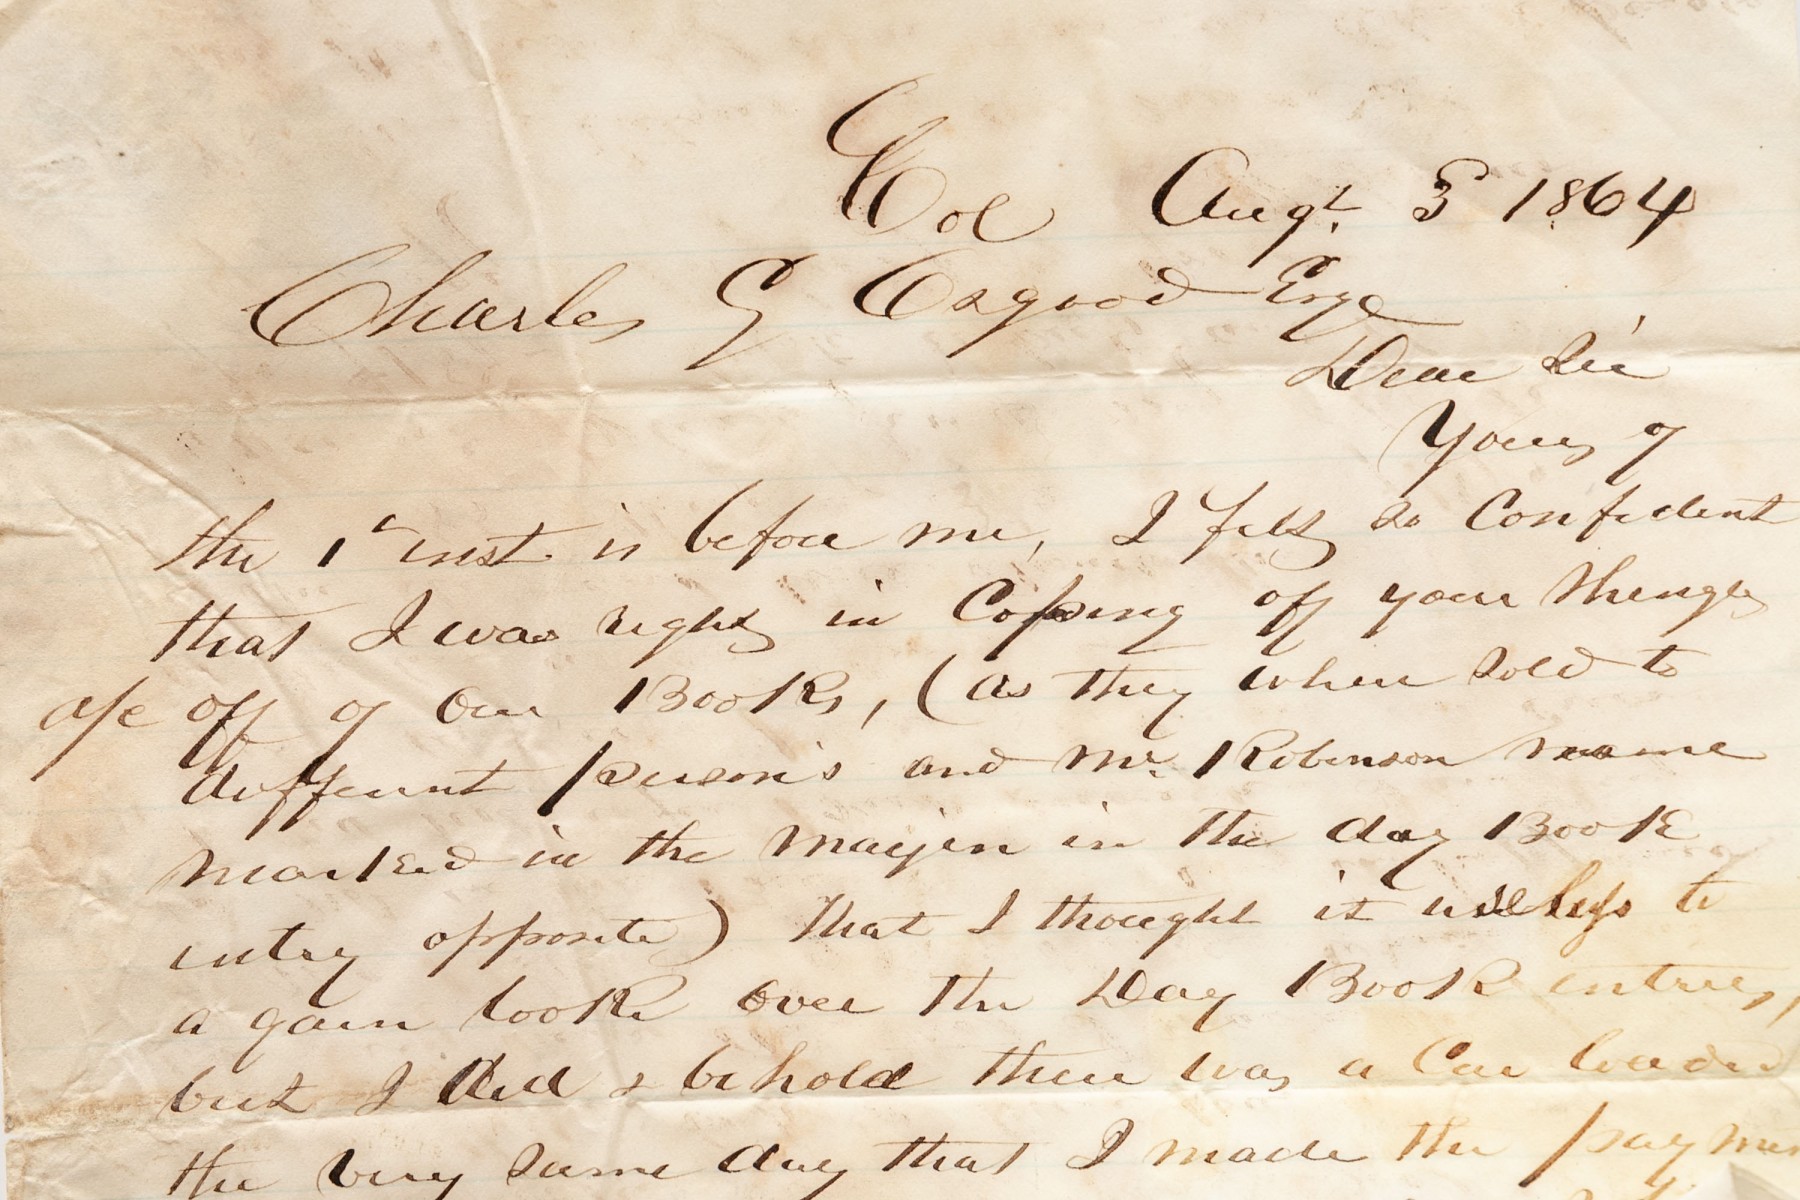 Col Augt. 5 1864
Charles G Osgood Esqe
Dear Sir
Yours of
the 1st inst. is before me, I felt so Confident
that I was right in Copping off your things
a/c off of Our Books, (as they when sold to
different person's and Mr. Robinson name
marked in the margin in the day Book
entry opposite) that I thought it useless to
a gain look over the Day Book entries,
but I did & behold there was a Car loaded
the very same day that I made the paymen